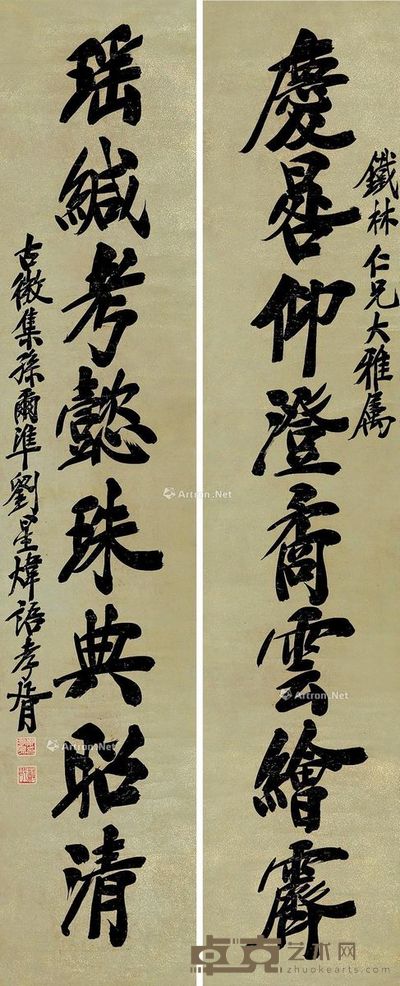 鐵林仁兄大雅属
慶晷仰澄矞雲繪霽
瑶緘考懿珠典昭清
古微集孫爾準劉星煒語孝胥
Artron.Net
Artron.Net
Artron.Net
Artron.Net
卓克艺术网
zhuokearts.com